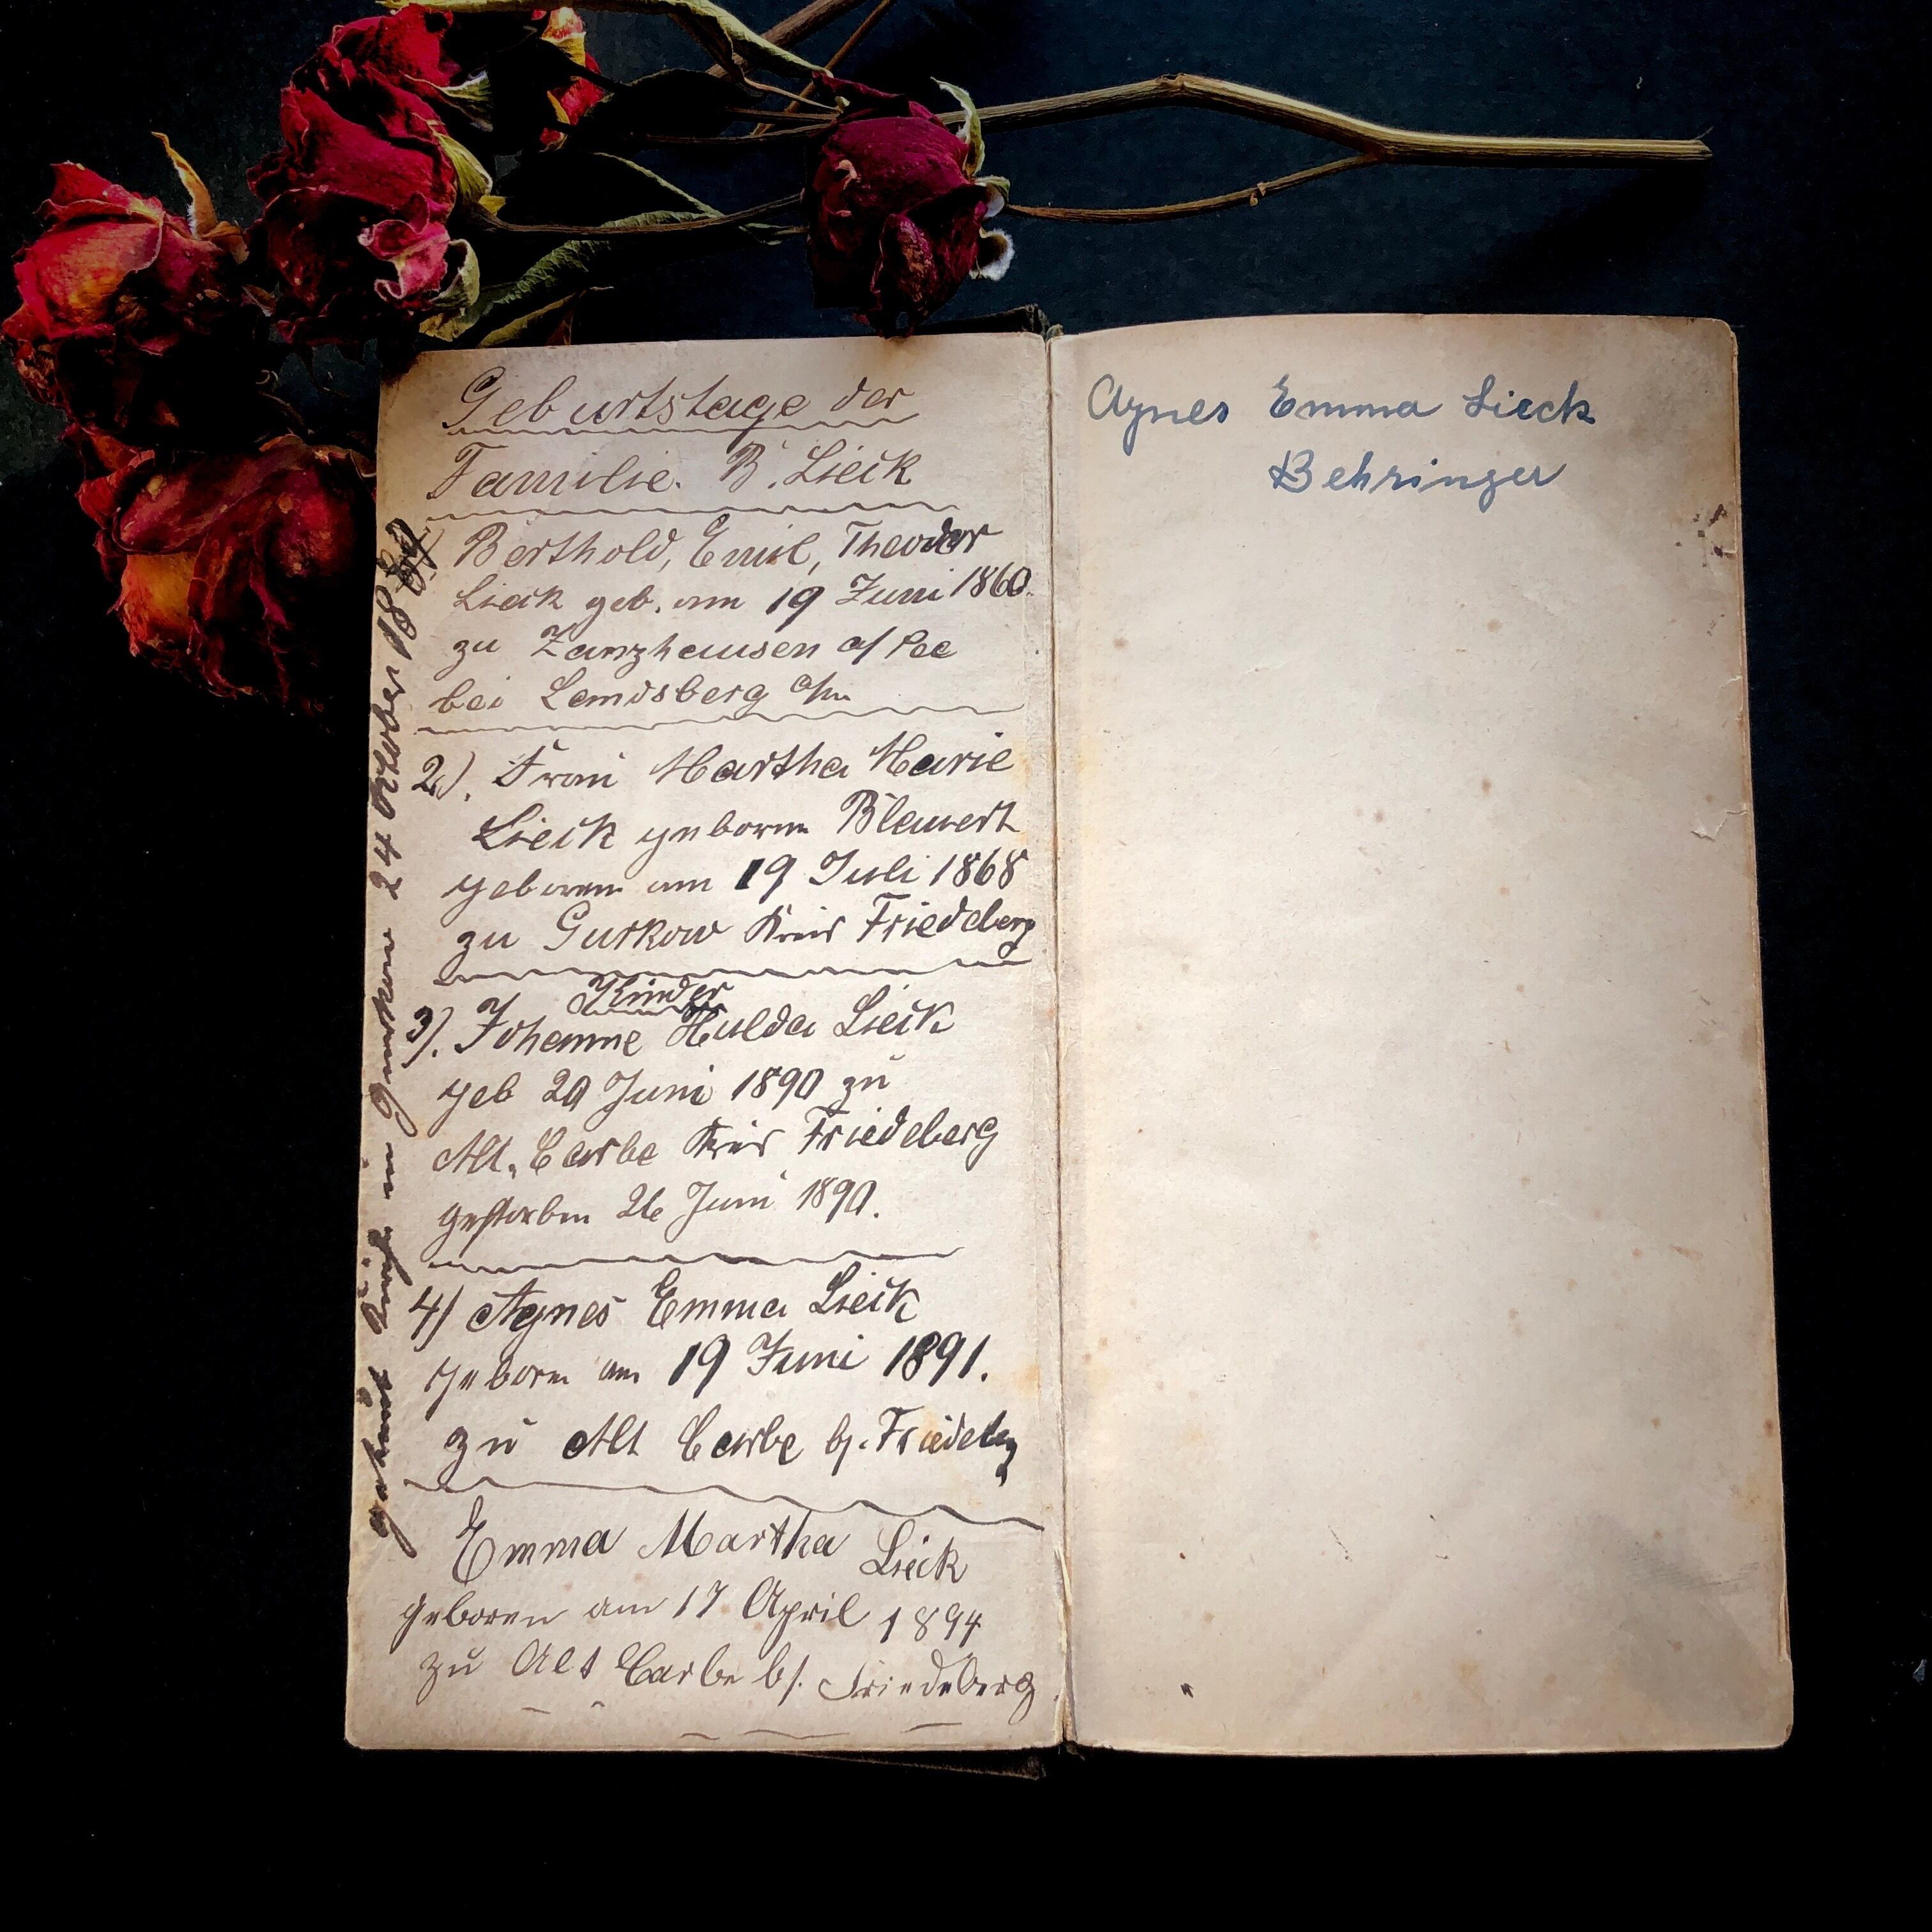 Geburtstage der
Familie. B. Lieck
1) Berthold, Emil, Theodor
Lieck geb. am 19 Juni 1860.
zu Zanzhausen a/
bei Landsberg a/w
2.). Frau Martha Marie
Lieck geborene Blauert
geboren am 19 Juli 1868
zu Gurkow Kreis Friedeberg
Kinder
3). Johanne Hulda Lieck
geb 20 Juni 1890 zu
Alt. Carbe Kreis Friedeberg
gestorben 26 Juni 1890.
4) Agnes Emma Lieck
geboren am 19 Juni 1891.
zu Alt Carbe b/. Friedeberg
Emma Martha Lieck
geboren am 17 April 1894
zu Alt Carbe b/. Friedeberg
getraut in Gurkow 24 October
Agnes Emma Lieck
Behringer